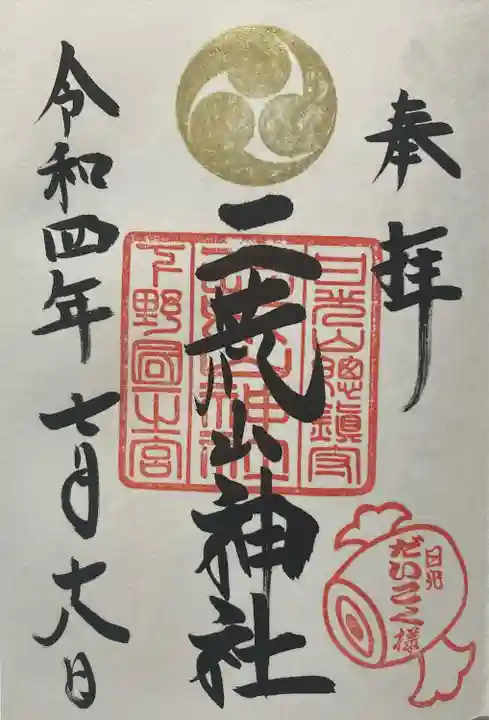 奉拝
二荒山神社
令和四年七月十八日
日光山総鎮守
二荒山神社
下野國一之宮
日光
だいこく様